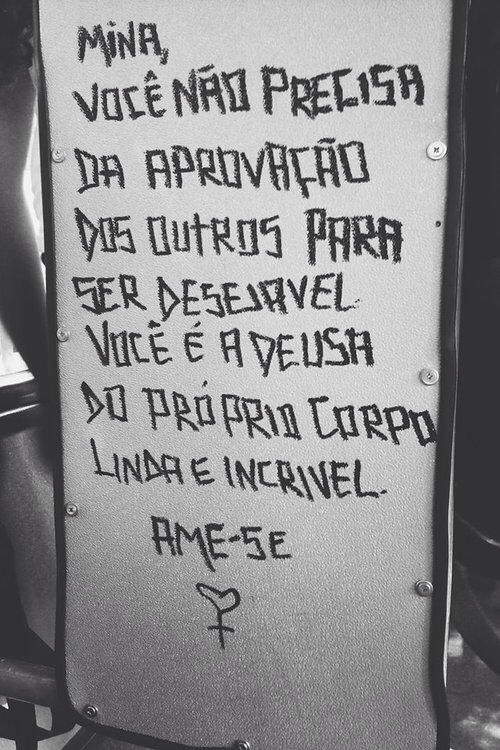 MINA,
VOCÊ NÃO PRECISA
DA APROVAÇÃO
DOS OUTROS PARA
SER DESEJAVEL.
VOCÊ É A DEUSA
DO PRÓPRIO CORPO
LINDA E INCRIVEL.
AME-SE